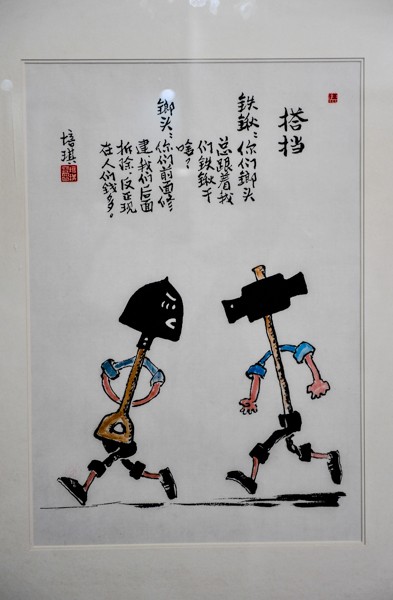 搭挡
铁锹：你们鎯头
总跟着我
们铁锹干
啥？
鎯头：你们前面修
建我们后面
拆除，反正现
在人们钱多。
培琪